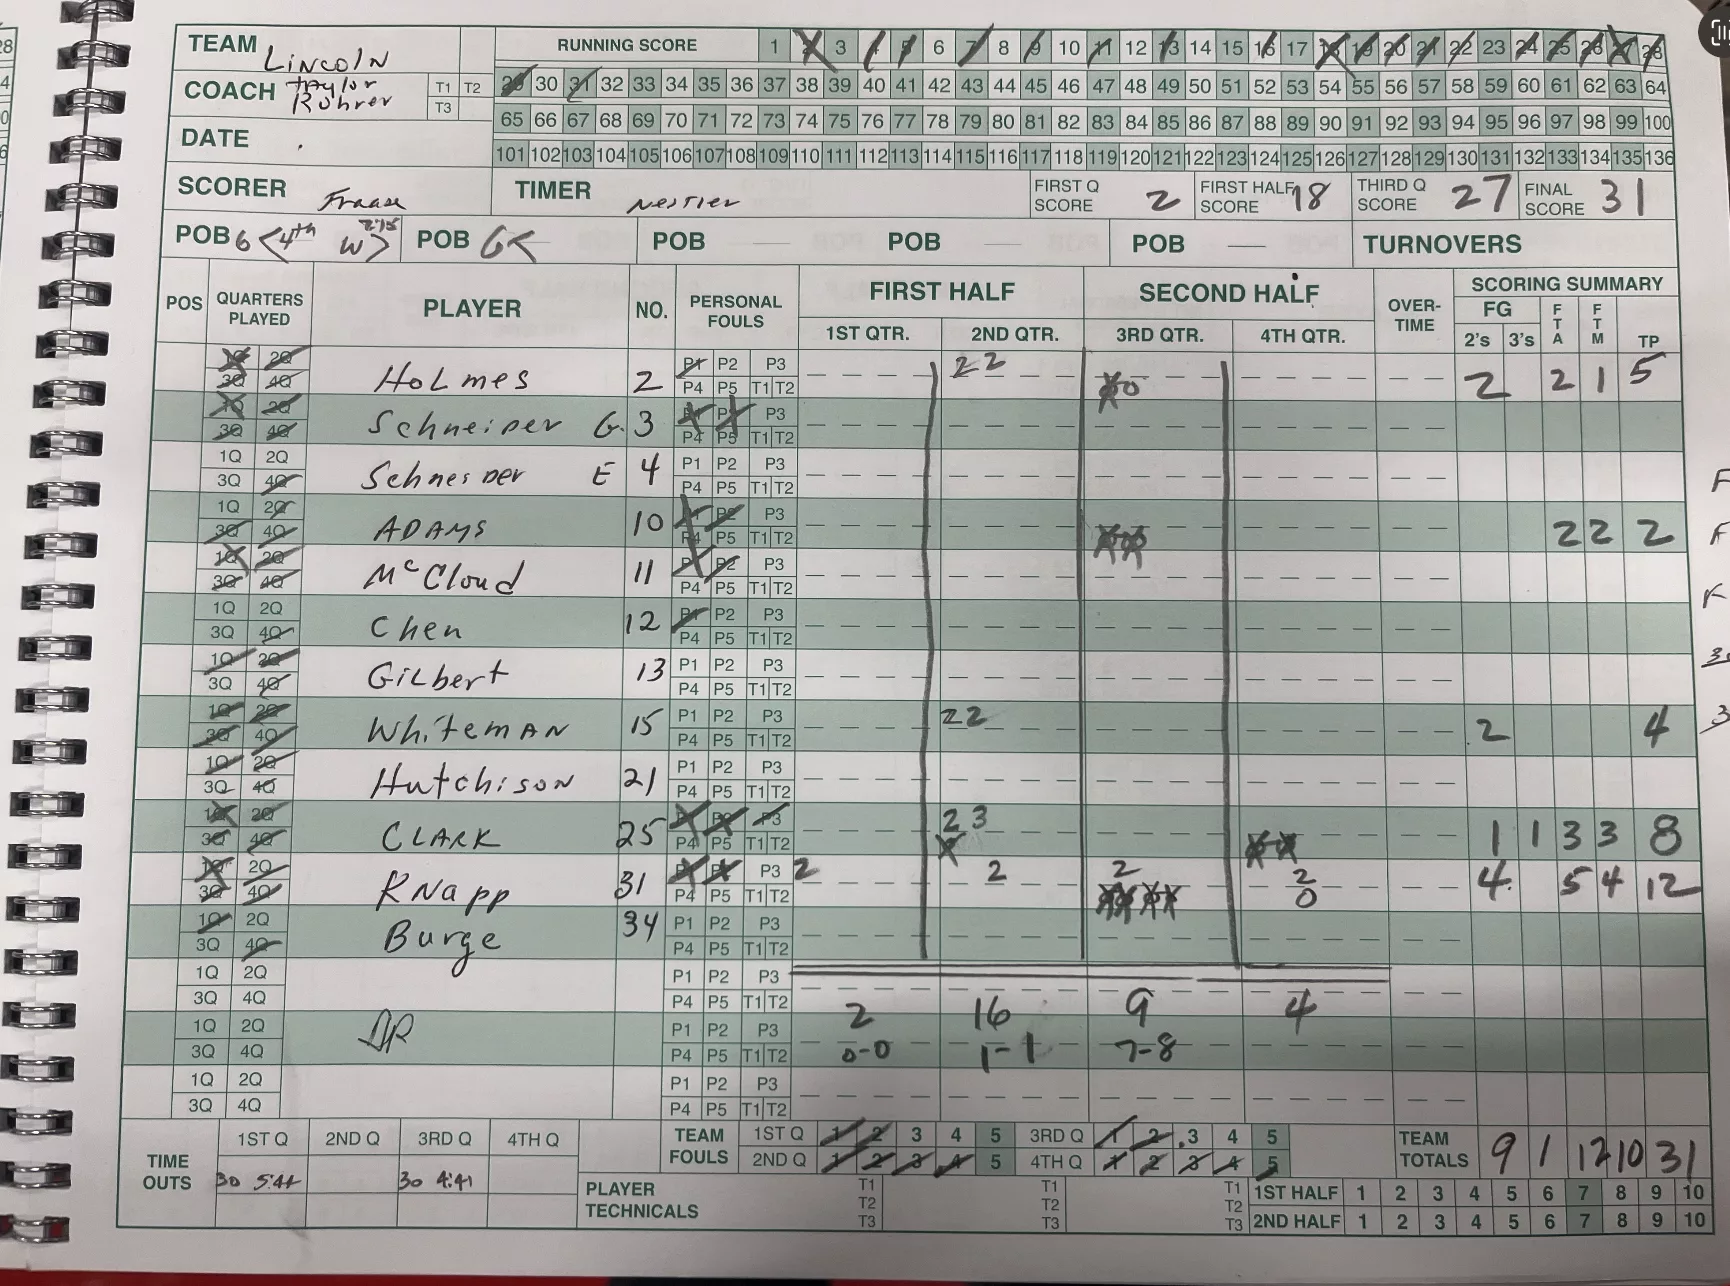 28
TEAM Lincoln
RUNNING SCORE 1 2 3 4 5 6 7 8 9 10 11 12 13 14 15 16 17 18 19 20 21 22 23 24 25 26 27 28
COACH Taylor Rohrer T1 T2 T3
29 30 31 32 33 34 35 36 37 38 39 40 41 42 43 44 45 46 47 48 49 50 51 52 53 54 55 56 57 58 59 60 61 62 63 64
65 66 67 68 69 70 71 72 73 74 75 76 77 78 79 80 81 82 83 84 85 86 87 88 89 90 91 92 93 94 95 96 97 98 99 100
DATE
101 102 103 104 105 106 107 108 109 110 111 112 113 114 115 116 117 118 119 120 121 122 123 124 125 126 127 128 129 130 131 132 133 134 135 136
SCORER Fraase TIMER Nestler FIRST Q SCORE 2 FIRST HALF SCORE 18 THIRD Q SCORE 27 FINAL SCORE 31
POB 6 < 4th W > POB G< POB — POB — POB — TURNOVERS
POS QUARTERS PLAYED PLAYER NO. PERSONAL FOULS FIRST HALF SECOND HALF OVER-TIME SCORING SUMMARY
1ST QTR. 2ND QTR. 3RD QTR. 4TH QTR. FG 2's 3's FTA FTM TP
1Q 2Q 3Q 4Q Holmes 2 P1 P2 P3 P4 P5 T1 T2 2 2 0 2 2 1 5
1Q 2Q 3Q 4Q Schneider G. 3 P1 P2 P3 P4 P5 T1 T2
1Q 2Q 3Q 4Q Schneider E 4 P1 P2 P3 P4 P5 T1 T2
1Q 2Q 3Q 4Q ADAMS 10 P1 P2 P3 P4 P5 T1 T2 2 2 2
1Q 2Q 3Q 4Q McCloud 11 P1 P2 P3 P4 P5 T1 T2
1Q 2Q 3Q 4Q Chen 12 P1 P2 P3 P4 P5 T1 T2
1Q 2Q 3Q 4Q Gilbert 13 P1 P2 P3 P4 P5 T1 T2
1Q 2Q 3Q 4Q Whiteman 15 P1 P2 P3 P4 P5 T1 T2 2 2 2 4
1Q 2Q 3Q 4Q Hutchison 21 P1 P2 P3 P4 P5 T1 T2
1Q 2Q 3Q 4Q CLARK 25 P1 P2 P3 P4 P5 T1 T2 2 3 1 1 3 3 8
1Q 2Q 3Q 4Q Knapp 31 P1 P2 P3 P4 P5 T1 T2 2 2 2 2 0 4 5 4 12
1Q 2Q 3Q 4Q Burge 34 P1 P2 P3 P4 P5 T1 T2
1Q 2Q 3Q 4Q P1 P2 P3 P4 P5 T1 T2 2 16 9 4
1Q 2Q 3Q 4Q P1 P2 P3 P4 P5 T1 T2 0-0 1-1 7-8
1Q 2Q 3Q 4Q P1 P2 P3 P4 P5 T1 T2
TIME OUTS 1ST Q 2ND Q 3RD Q 4TH Q
30 5:44 30 4:41
TEAM FOULS 1ST Q 1 2 3 4 5 3RD Q 1 2 3 4 5
2ND Q 1 2 3 4 5 4TH Q 1 2 3 4 5
TEAM TOTALS 9 1 12 10 31
PLAYER TECHNICALS T1 T2 T3 T1 T2 T3 T1 T2 T3
1ST HALF 1 2 3 4 5 6 7 8 9 10
2ND HALF 1 2 3 4 5 6 7 8 9 10